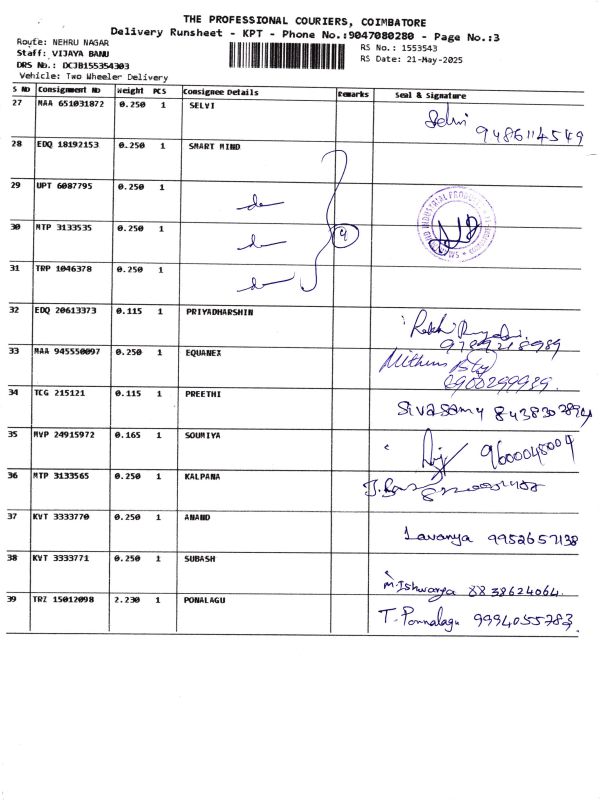 THE PROFESSIONAL COURIERS, COIMBATORE
Delivery Runsheet - KPT - Phone No.:9047080280 - Page No.:3
Route: NEHRU NAGAR
Staff: VIJAYA BANU
DRS No.: DCJB155354303
Vehicle: Two Wheeler Delivery
RS No.: 1553543
RS Date: 21-May-2025
S No Consignment No Weight PCS Consignee Details Remarks Seal & Signature
27 MAA 651031872 0.250 1 SELVI Selvi 9486114549
28 EDQ 18192153 0.250 1 SMART MIND
29 UPT 6087795 0.250 1
30 MTP 3133535 0.250 1 4
31 TRP 1046378 0.250 1
32 EDQ 20613373 0.115 1 PRIYADHARSHIN 9789218989
33 MAA 945550097 0.250 1 EQUANEX
34 TCG 215121 0.115 1 PREETHI Sivasamy
35 MVP 24915972 0.165 1 SOUMIYA 9600048004
36 MTP 3133565 0.250 1 KALPANA
37 KVT 3333770 0.250 1 ANAND Lavanya 9952657138
38 KVT 3333771 0.250 1 SUBASH M. Ishwarya 8838624064
39 TRZ 15012098 2.230 1 PONALAGU T. Ponnalagu 9994055783